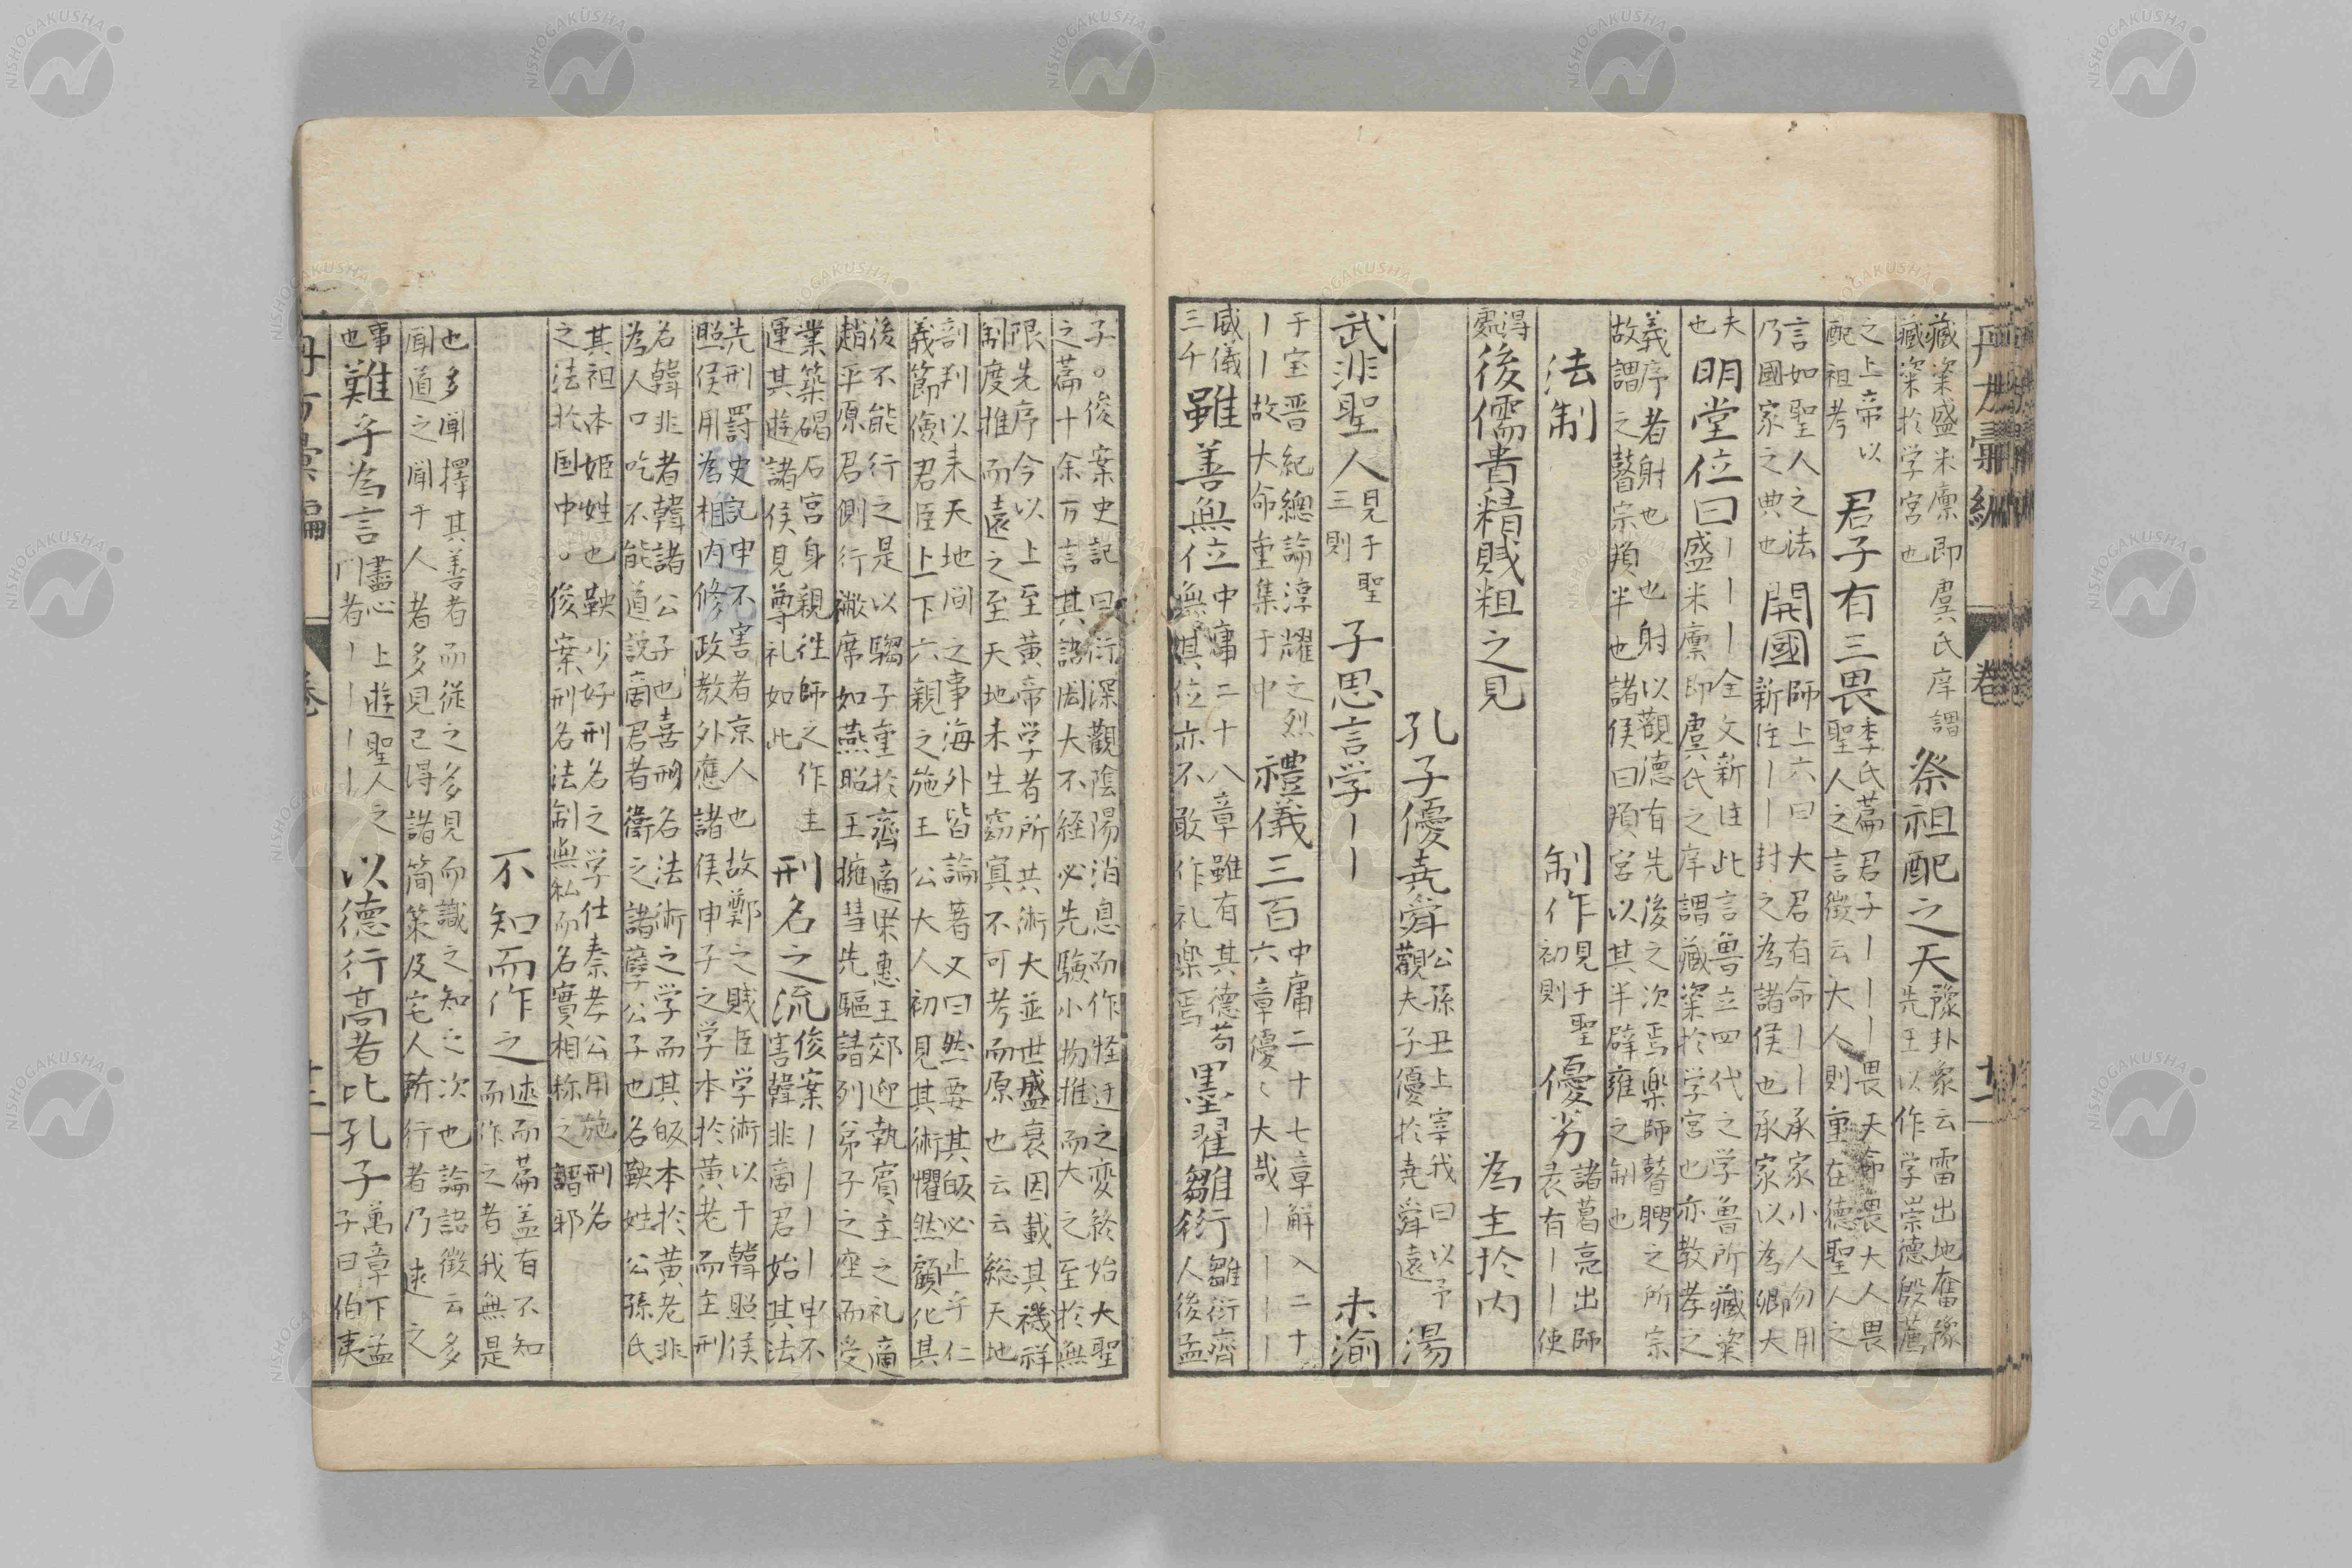 藏粢盛米廩即虞氏庠謂
藏粢於学宮也
祭祖配之天
豫卦象云雷出地奮豫
先王以作学崇德殷薦
之上帝以
配祖考
君子有三畏
季氏篇君子丨丨丨畏天命畏大人畏
聖人之言徴云大人則重在德聖人之
言如聖人之法
乃國家之典也
開國
師上六曰大君有命丨丨承家小人勿用
新注丨丨封之為諸侯也承家以為卿大
夫
也
明堂位曰
丨丨丨全文新注此言魯立四代之学魯所藏粢
盛米廩即虞氏之庠謂藏粢於学宮也亦教孝之
義序者射也也射以觀德有先後之次焉樂師瞽矇之所宗
故謂之瞽宗頖半也諸侯曰頖宮以其半辟雍之制也
法制
制作
見于聖
初則
優劣
諸葛亮出師
表有丨丨使
得
處
後儒貴精賎粗之見
為主於内
孔子優尭舜
公孫丑上宰我曰以予
觀夫子優於尭舜遠
湯
武非聖人
見于聖
三則
子思言学丨丨
未渝
于宝晋紀總論淳耀之烈
丨丨故大命重集于中
禮儀三百
中庸二十七章解入二十
六章優〻大哉丨丨丨
威儀
三千
雖善無位
中庸二十八章雖有其德苟
無其位亦不敢作礼楽焉
墨翟雛衍
雛衍齊
人後孟
子。俊案史記曰衍深觀陰陽消息而作怪迂之変終始大聖
之篇十余万言其語閎大不経必先験小物推而大之至於無
限先序今以上至黄帝学者所共術大並世盛衰因載其禨祥
制度推而遠之至天地未生窈冥不可考而原也云云総天地
剖判以来天地间之事海外皆論著又曰然要其皈必止乎仁
義節儉君臣上下六親之施王公大人初見其術懼然顧化其
後不能行之是以騶子重於齊適梁惠王郊迎執賓主之礼適
趙平原君側行襒席如燕昭王擁彗先驅請列弟子之座而受
業築碣石宮身親徃師之作主
運其遊諸侯見尊礼如此
刑名之流
俊案丨丨丨丨申不
害韓非啇君始其法
先刑罸史記申不害者京人也故鄭之賎臣学術以干韓昭侯
昭侯用為相内修政教外應諸侯申子之学本於黄老而主刑
名韓非者韓諸公子也喜刑名法術之学而其皈本於黄老非
為人口吃不能道説啇君者衛之諸孽公子也名鞅姓公孫氏
其祖本姫姓也鞅少好刑名之学仕秦孝公用施刑名
之法於国中。俊案刑名法制無私而名實相称之謂耶
不知而作之
述而篇盖有不知
而作之者我無是
也多聞擇其善者而従之多見而識之知之次也論語徴云多
聞道之聞于人者多見己得諸簡策及宅人所行者乃述之
事
也
難乎為言
盡心上遊聖人之
門者丨丨丨丨
以德行高者比孔子
萬章下孟
子曰伯夷
卷
NISHOGAKUSHA